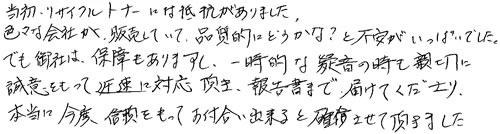 当初、リサイクルトナーには抵抗がありました。
色々な会社が、販売していて、品質的にどうかな?と不安がいっぱいでした。
でも御社は、保障もありますし、一時的な疑音の時も親切に
誠意をもって迅速に対応頂き、報告書まで届けてくださり、
本当に今度信頼をもってお付合い出来ると確信させて頂きました